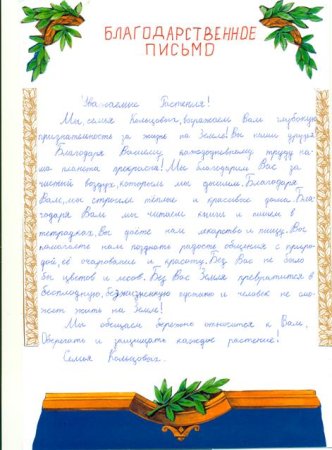 БЛАГОДАРСТВЕННОЕ
ПИСЬМО
Уважаемые Растения!
Мы, семья Кольцович, выражаем вам глубокую
признательность за жизнь на Земле! Вы наши друзья.
Благодаря Вашему каждодневному труду на-
ша планета прекрасна! Мы благодарим Вас за
чистый воздух, которым мы дышим. Благодаря
Вам, мы строим тёплые и красивые дома. Бла-
годаря Вам мы читаем книги и пишем в
тетрадках. Вы даёте нам лекарство и пищу. Вы
помогаете нам познать радость общения с приро-
дой, её очарование и красоту. Без Вас не было
бы цветов и лесов. Без Вас Земля превратится в
бесплодную, безжизненную пустыню и человек не смо-
жет жить на Земле!
Мы обещаем бережно относится к Вам,
Оберегать и защищать каждое растение!
Семья Кольцович.